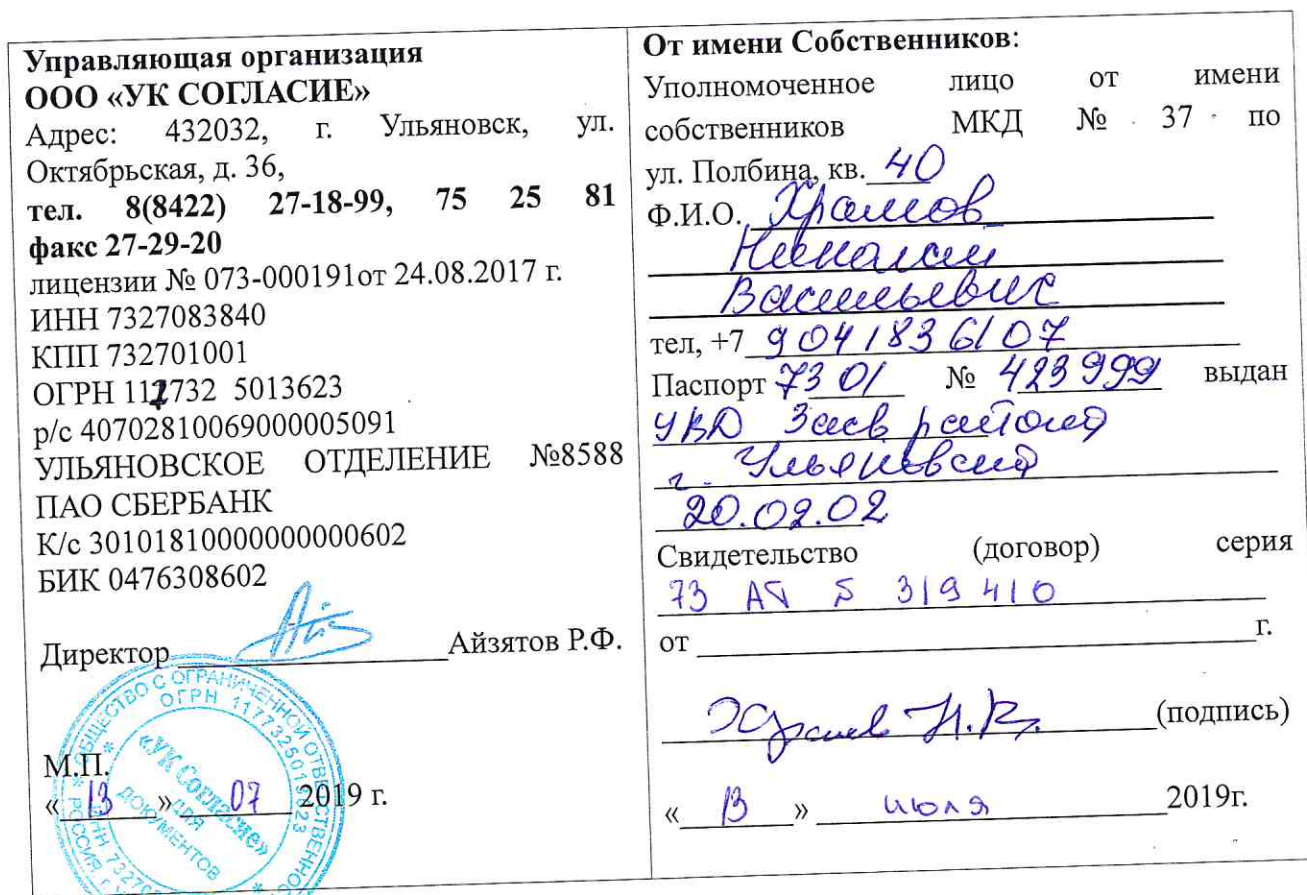 Управляющая организация
ООО «УК СОГЛАСИЕ»
Адрес: 432032, г. Ульяновск, ул.
Октябрьская, д. 36,
тел. 8(8422) 27-18-99, 75 25 81
факс 27-29-20
лицензии № 073-000191от 24.08.2017 г.
ИНН 7327083840
КПП 732701001
ОГРН 117732 5013623
р/с 40702810069000005091
УЛЬЯНОВСКОЕ ОТДЕЛЕНИЕ №8588
ПАО СБЕРБАНК
К/с 30101810000000000602
БИК 0476308602
Директор Айзятов Р.Ф.
М.П.
« 13 » 07 2019 г.
ОБЩЕСТВО С ОГРАНИЧЕННОЙ ОТВЕТСТВЕННОС
ОГРН 1177325013623
«УК Согласие»
ДЛЯ
ДОКУМЕНТОВ
От имени Собственников:
Уполномоченное лицо от имени
собственников МКД № 37 по
ул. Полбина, кв. 40
Ф.И.О. Храмов
Николай
Васильевич
тел, +7 9041836107
Паспорт 73 01 № 423999 выдан
УВД Засв района
г. Ульяновска
20.02.02
Свидетельство (договор) серия
73 АТ Б 319410
от г.
Храмов Н.В. (подпись)
« 13 » июля 2019г.